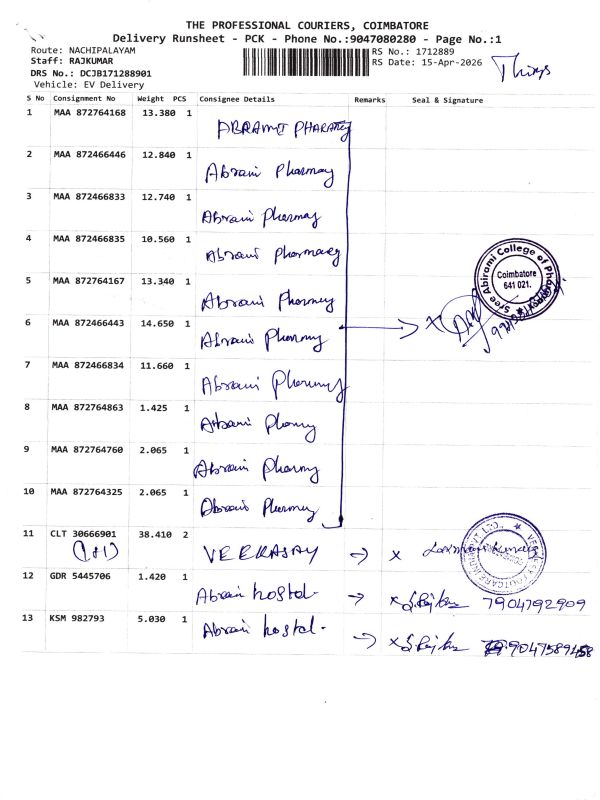 THE PROFESSIONAL COURIERS, COIMBATORE
Delivery Runsheet - PCK - Phone No.:9047080280 - Page No.:1
Route: NACHIPALAYAM
RS No.: 1712889
Staff: RAJKUMAR
RS Date: 15-Apr-2026
DRS No.: DCJB171288901
Vehicle: EV Delivery
S No Consignment No Weight PCS Consignee Details Remarks Seal & Signature
1 MAA 872764168 13.380 1
2 MAA 872466446 12.840 1 Abrami Pharmay
3 MAA 872466833 12.740 1 Abrami Pharmay
4 MAA 872466835 10.560 1 Abrami Pharmacy
5 MAA 872764167 13.340 1 Abrami Pharmey
Sree Abirami College of Pharmacy
Coimbatore
641 021.
6 MAA 872466443 14.650 1 Abrami Pharmy
7 MAA 872466834 11.660 1 Abrami Pharmy
8 MAA 872764863 1.425 1
9 MAA 872764760 2.065 1 Abrami Pharmy
10 MAA 872764325 2.065 1 Abrami Pharmey
11 CLT 30666901 38.410 2 VEEKASAY
(1+1)
12 GDR 5445706 1.420 1 Abrami hostel. 7904792909
13 KSM 982793 5.030 1 Abrami hostel.